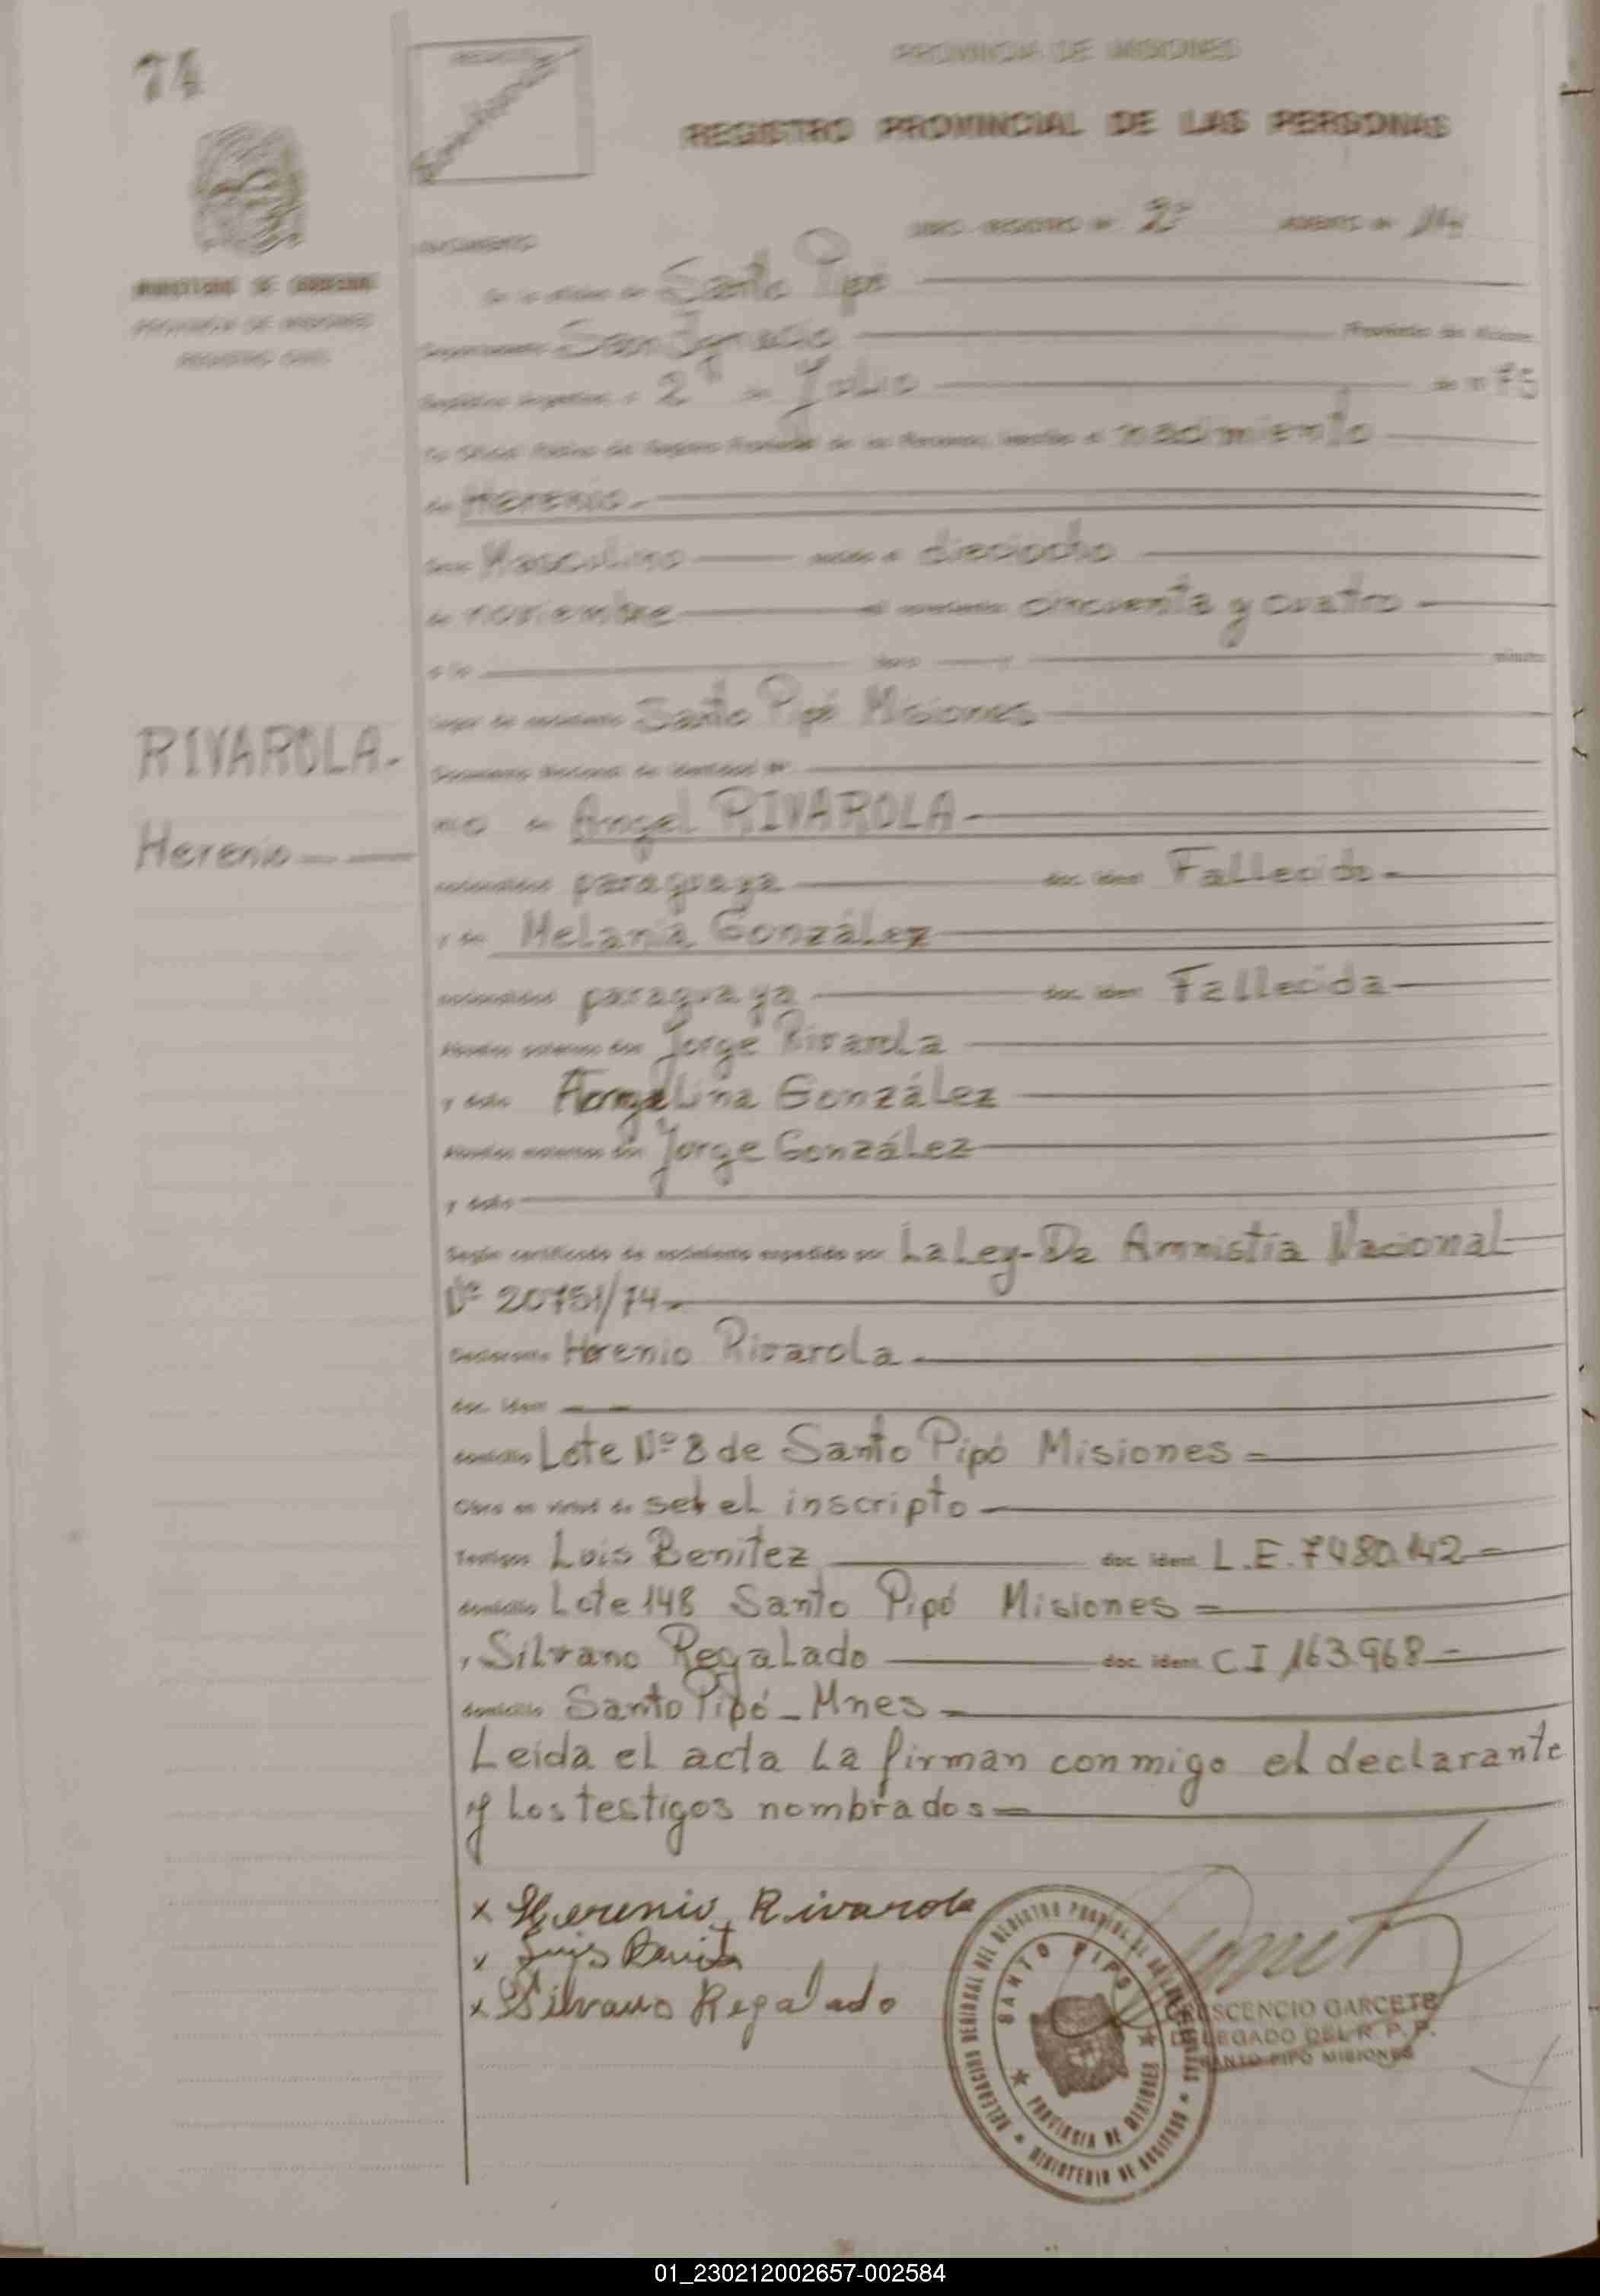 74
PROVINCIA DE MISIONES
REGISTRO PROVINCIAL DE LAS PERSONAS
2º
NACIMIENTO
PROVINCIA DE MISIONES
REGISTRO CIVIL
Santo Pipó
Departamento San Ignacio Provincia de Misiones
República Argentina a 2 de Julio de 19 75
Yo Oficial Público del Registro Provincial de las Personas, inscribo el nacimiento
de Herenio.
Sexo Masculino nacido el dieciocho
de noviembre de cincuenta y cuatro
a las hora y minutos
lugar de nacimiento Santo Pipó Misiones
Documento Nacional de Identidad Nº
RIVAROLA.-
Herenio
HIJO de Angel RIVAROLA.-
nacionalidad paraguaya doc. ident. Fallecido.-
y de Melania González
nacionalidad paraguaya doc. ident. Fallecida
Abuelos paternos don Jorge Rivarola
y doña Angelina González
Abuelos maternos don Jorge González
y doña
Según certificado de nacimiento expedido por La Ley-De Amnistia Nacional
Nº 20751/74.-
Declarante Herenio Rivarola.-
doc. ident.
domicilio Lote Nº 8 de Santo Pipó Misiones=
Obra en virtud de ser el inscripto
Testigos Luis Benitez doc. ident. L.E. 7480.142=
domicilio Lote 148 Santo Pipó Misiones=
y Silvano Regalado doc. ident. C I 163.968=
domicilio Santo Pipó - Mnes
Leida el acta la firman conmigo el declarante
y los testigos nombrados=
x Herenio Rivarola
x Luis Benitz
x Silvano Regalado
SANTO PIPO
PROVINCIA DE MISIONES
CRESCENCIO GARCETE
DELEGADO DEL R. P. P.
SANTO PIPO MISIONES
01_230212002657-002584